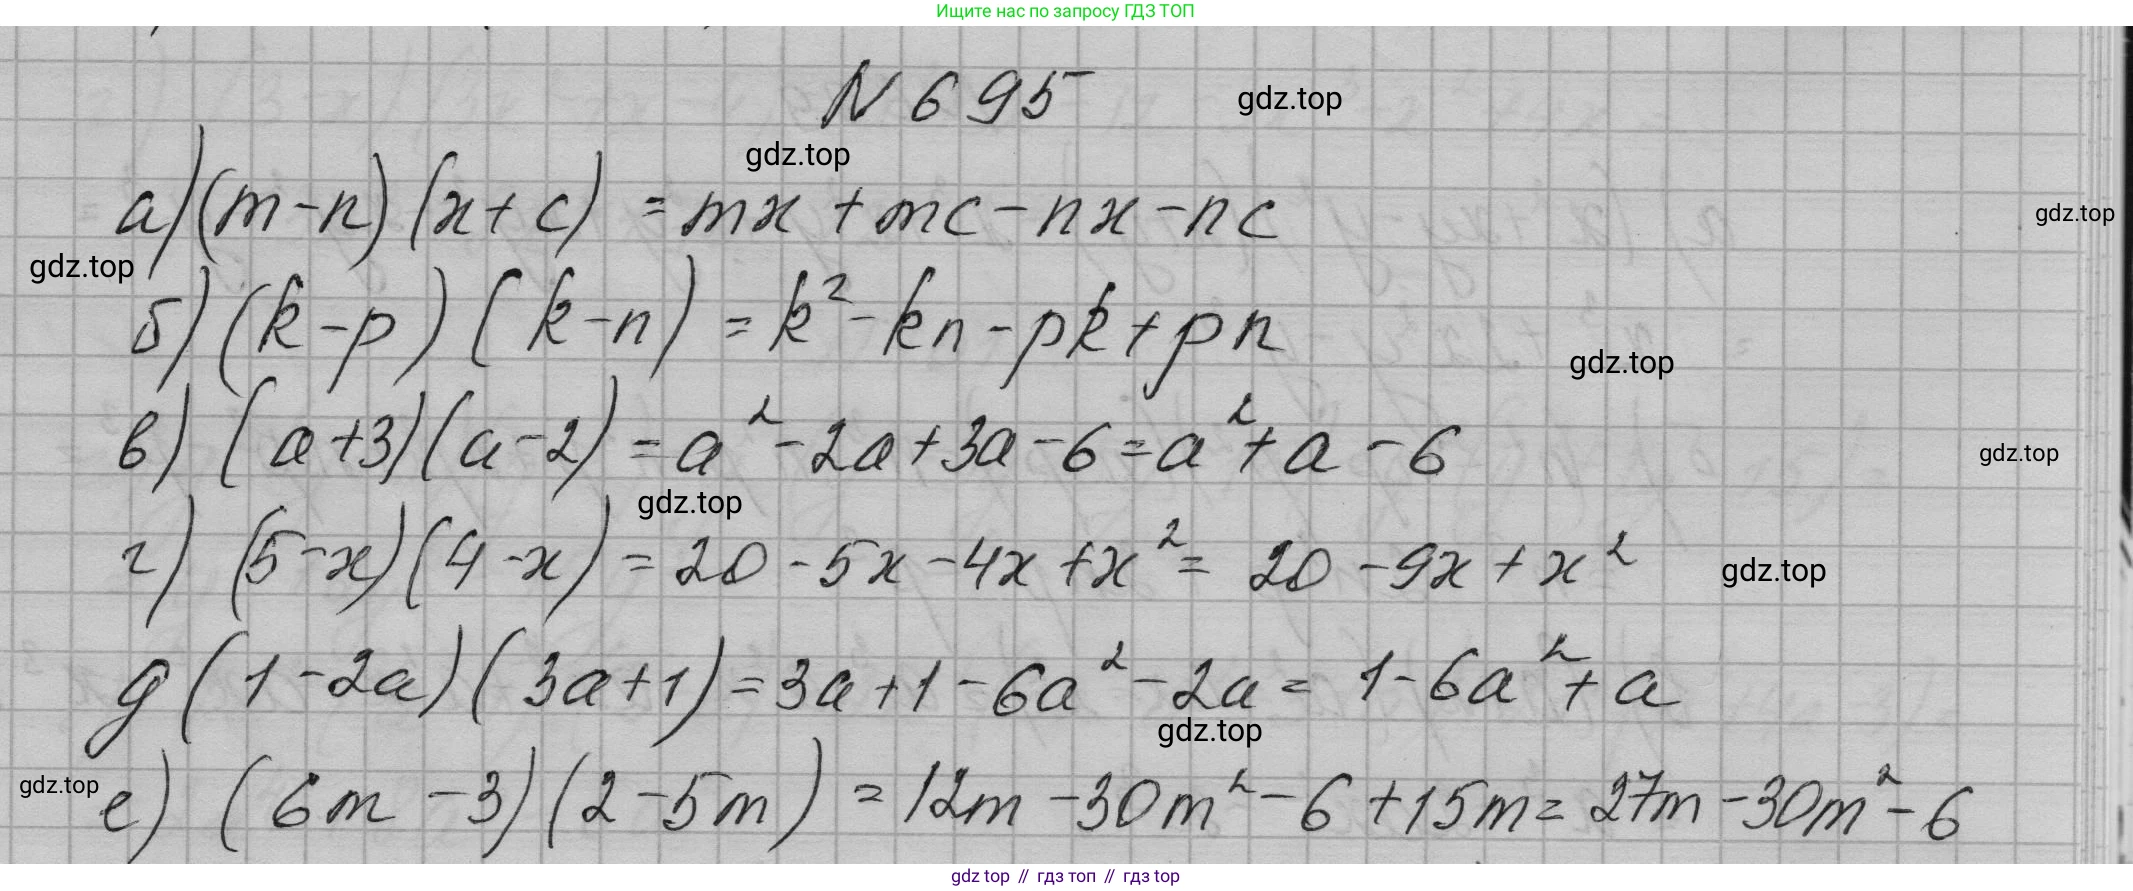 Ищите нас по запросу ГДЗ ТОП
N 695
gdz.top
gdz.top
а) (m-n) (x+c) = mx + mc - nx - nc
gdz.top
gdz.top
б) (k-p) (k-n) = k² - kn - pk + pn
gdz.top
в) (a+3)(a-2) = a² - 2a + 3a - 6 = a² + a - 6
gdz.top
gdz.top
г) (5-x)(4-x) = 20 - 5x - 4x + x² = 20 - 9x + x²
gdz.top
д (1-2a)(3a+1) = 3a + 1 - 6a² - 2a = 1 - 6a² + a
gdz.top
gdz.top
е) (6m - 3)(2 - 5m) = 12m - 30m² - 6 + 15m = 27m - 30m² - 6
gdz top // гдз топ // гдз top